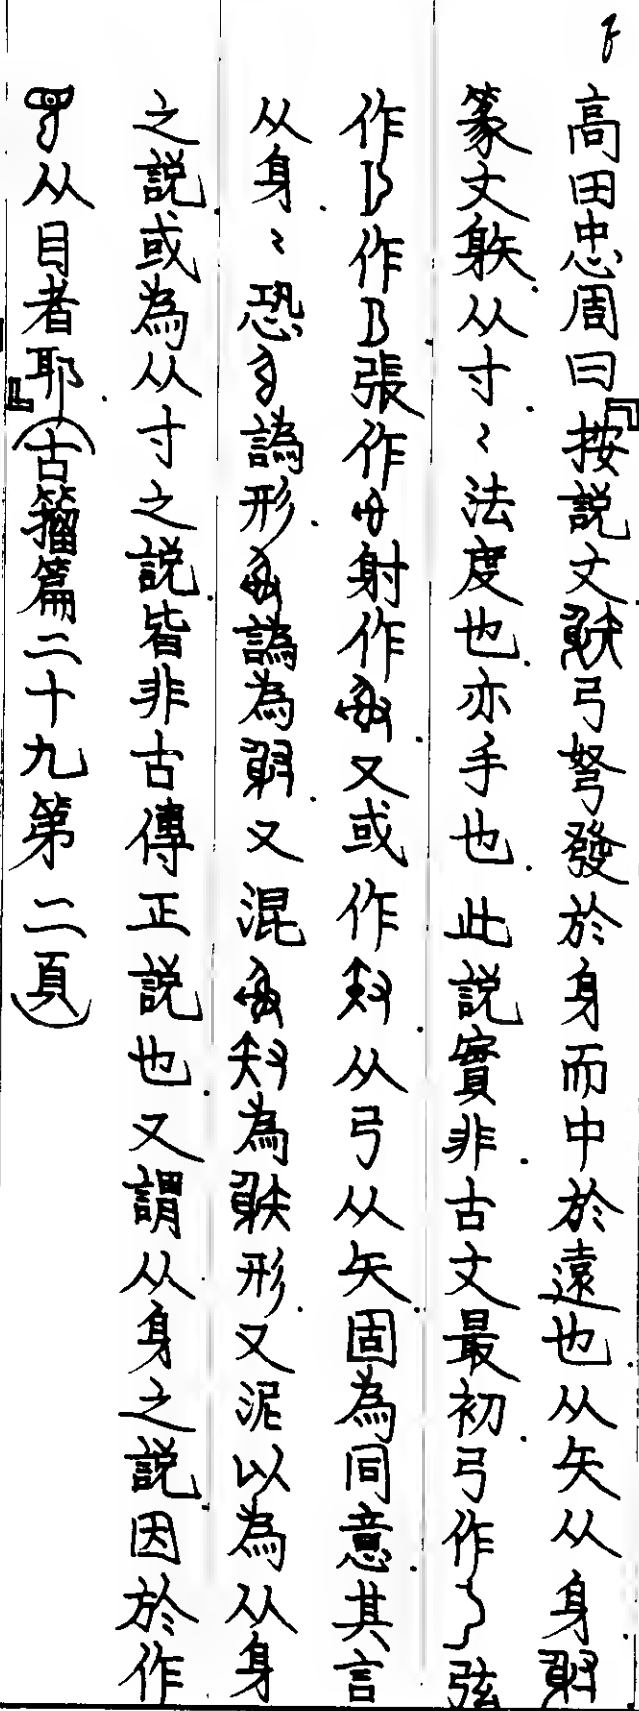 高田忠周曰『按説文䠶弓弩發於身而中於遠也从矢从身射
篆文躲从寸〻法度也亦手也此説實非古文最初弓作弦
作作張作射作又或作从弓从矢固為同意其言
从身〻恐譌形譌為射又混為䠶形又泥以為从身
之説或為从寸之説皆非古傳正説也又謂从身之説因於作
从目者耶』(古籀篇二十九第二頁)